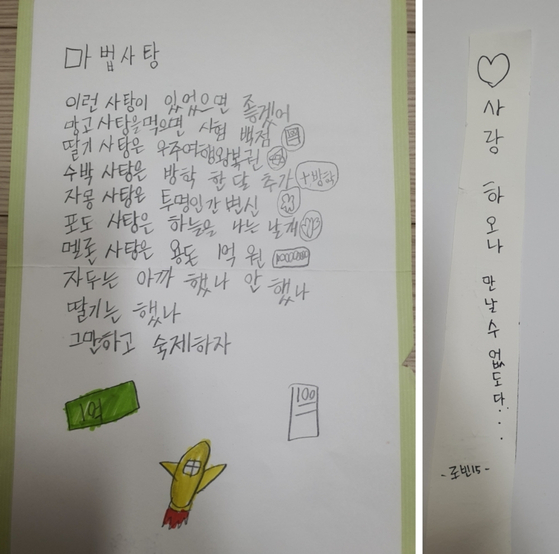 마법사탕
이런 사탕이 있었으면 좋겠어
망고 사탕을 먹으면 시험 백점
딸기 사탕은 우주여행왕복권
수박 사탕은 방학 한 달 추가 +방학
자몽 사탕은 투명인간 변신
포도 사탕은 하늘을 나는 날개
멜론 사탕은 용돈 1억 원 100000000
자두는 아까 했나 안 했나
딸기는 했나
그만하고 숙제하자
1억
100
사랑 하오나 만날수 없도다...
-로빈15-